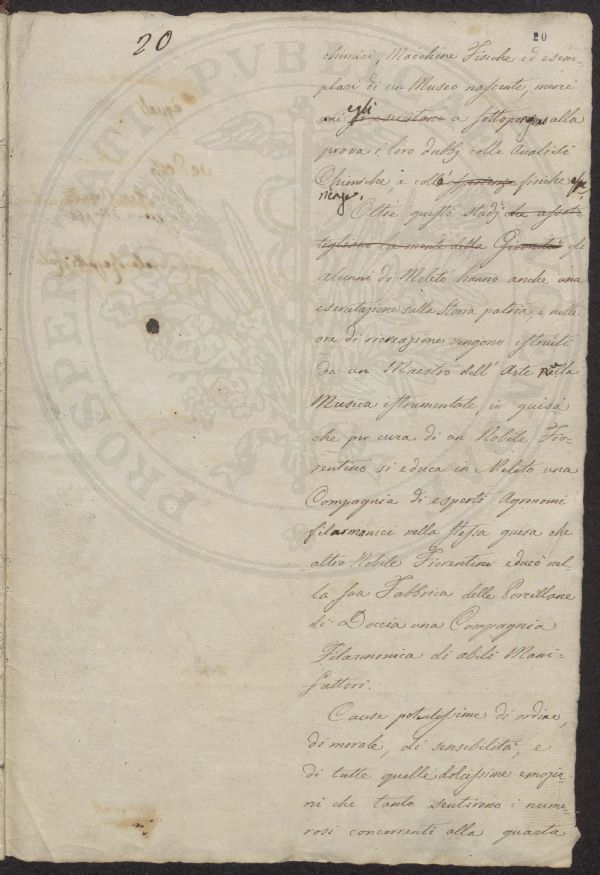 20
20
chimici, Macchine Fisiche ed esem-
plari di un Museo nascente, merce
cui egli a sottoporgono alla
prova i loro dubbj colle Analisi
Chimiche e colle fisiche espe
rienze.
Oltre questi studj ha assot-
tigliano la mente della Gioventù gli
alunni di Meleto hanno anche una
esercitazione sulla Storia patria e nelle
ore di ricreazione vengono istruiti
da un Maestro dell' Arte nella
Musica istrumentale, in guisa
che per cura di un Nobile Fio-
rentino si educa in Meleto una
Compagnia di esperti Agronomi
filarmonici nella stessa guisa che
altro Nobile Fiorentino educò nel-
la sua Fabbrica delle Porcellane
di Doccia una Compagnia
Filarmonica di abili Mani-
fattori.
Cause potentissime di ordine,
di morale, di sensibilità, e
di tutte quelle dolcissime emozio-
ni che tanto sentirono i nume-
rosi concorrenti alla quarta
PROSPERITATI PUBLICAE